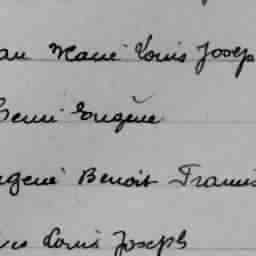 an Marie Louis Josep
Henri Eugène
ugène Benoit Franci
Louis Joseph